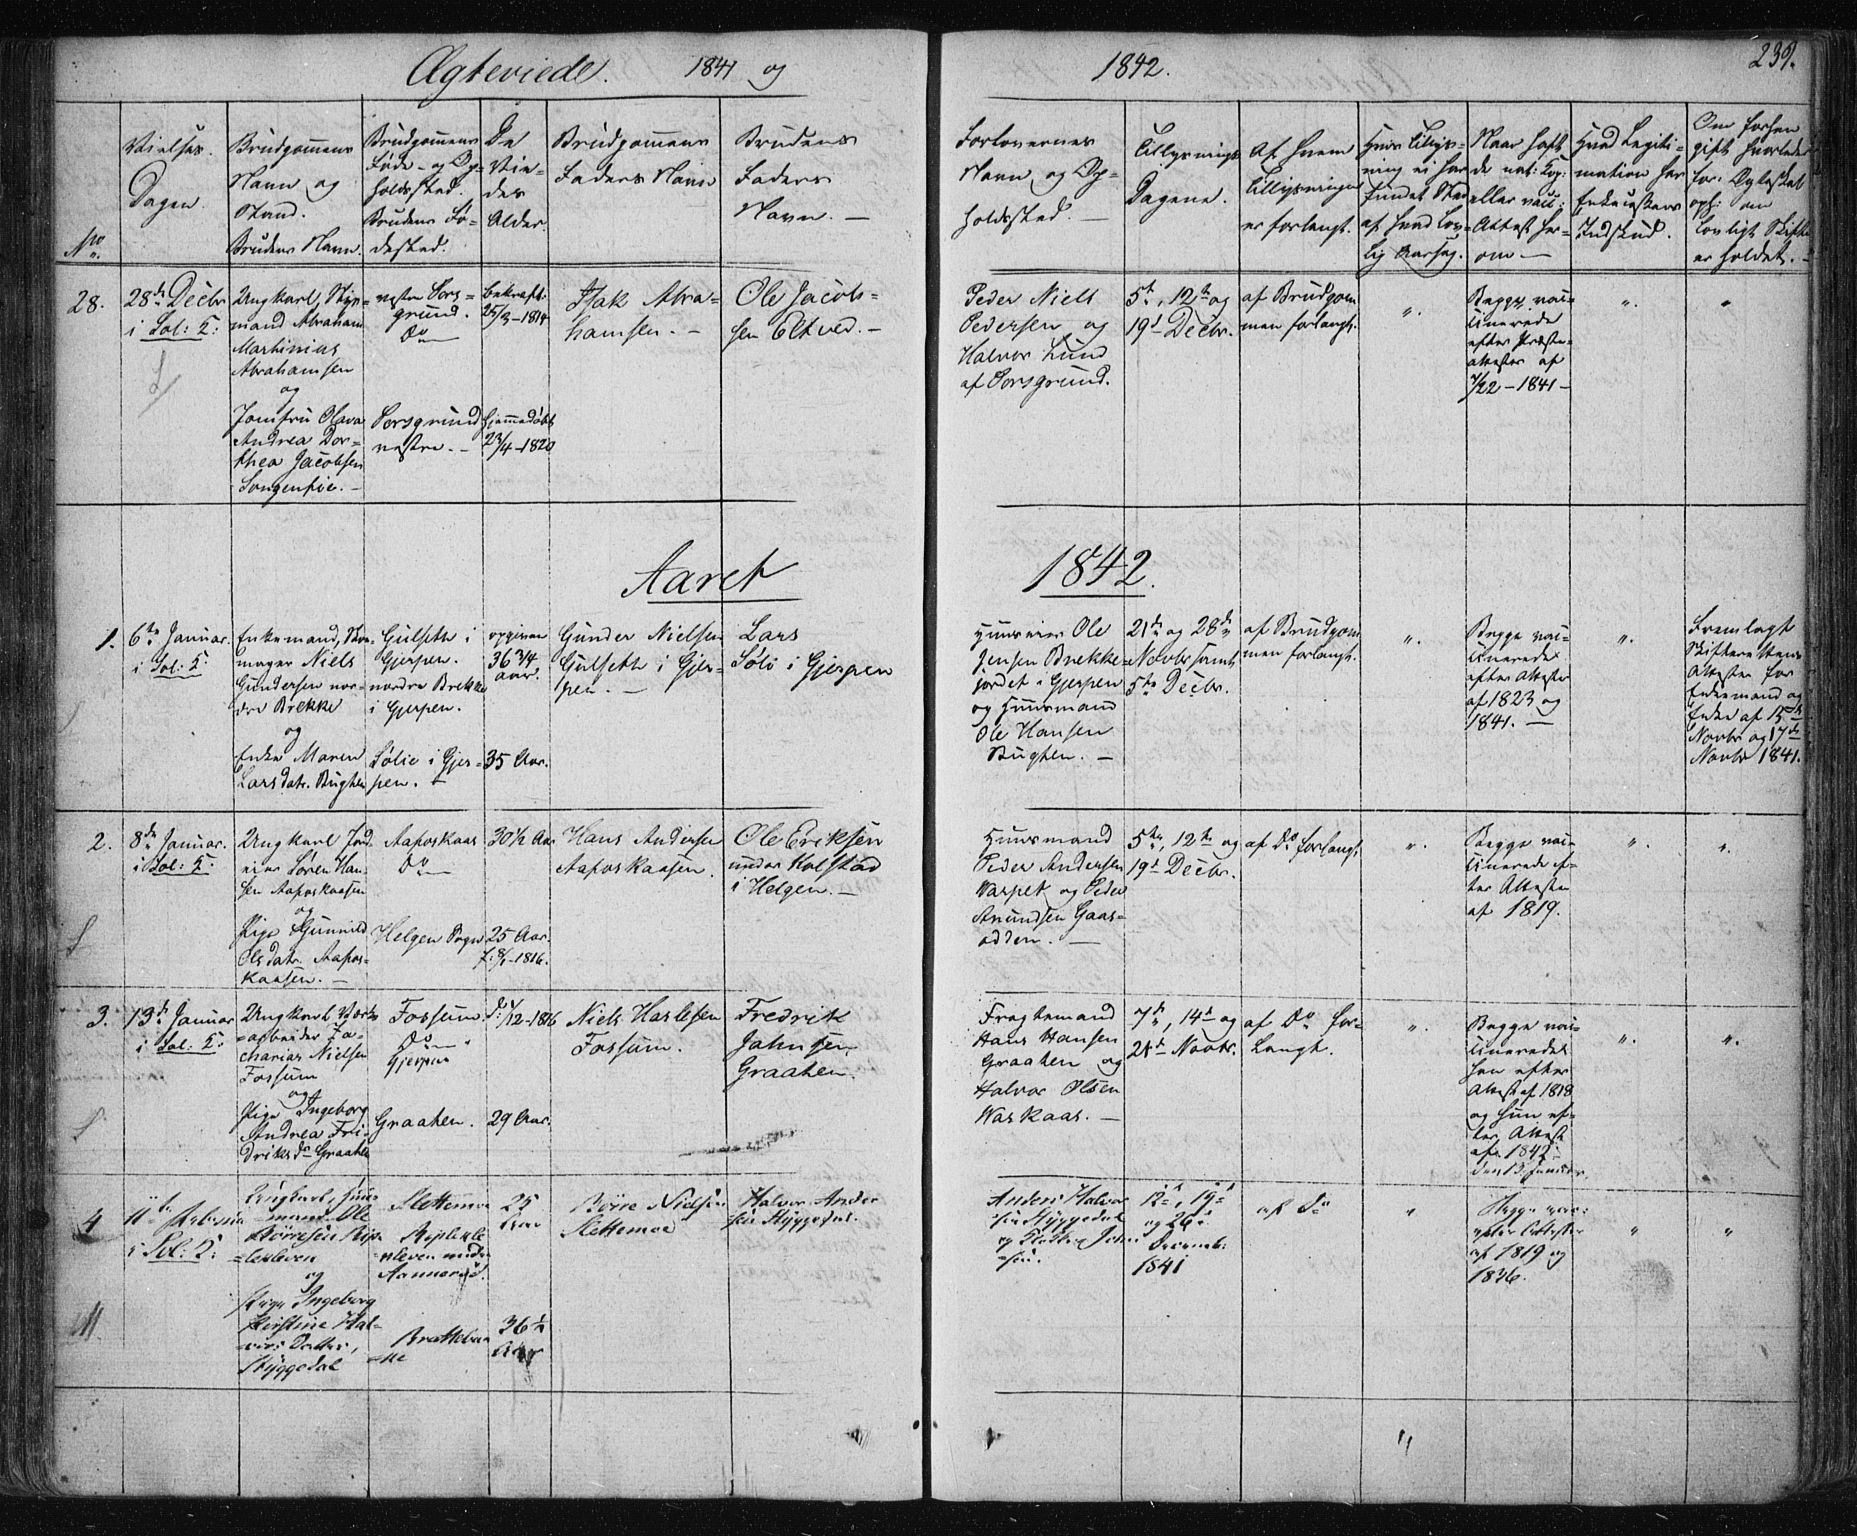 Ægteviede. 1841 og 1842. 239.
No.
Vielses
Dagen.
Brudgommens
Navn og
Stand.
Brudens Navn.
Brudgommens
Føde- og Op-
holdssted.
Brudens Fø-
dested.
De
Vie-
des
Alder.
Brudgommens
Faders Navn
Brudens
Faders
Navn. —
Forlovernes
Navn og Op-
holdssted. —
Tillysnings
Dagene.
Af hvem
Tillysningen
er forlangt.
Hvis Tillys-
ning ei har
fundet Sted
af hvad Lov-
lig Aarsag.
Naar havt
de nat: Kop:
eller vacc:
Attest her-
om —
Hvad Legiti-
mation har
Enkekassens
Indskud.
Om forhen
gift hvorledes
for: Ægteskab
oph: om
lovligt Skifte
er holdet. —
28.
28de Decbr.
i Sol: K:
Ungkarl, Styr-
mand Abraham
Martinius
Abrahamsen
og
Jomfru Olava
Andrea Dor-
thea Jacobsen
Longerfie. —
vestre Pors-
grund.
Do
Porsgrund
vestre. —
bekræft:
25/3-1814
hjemmedøbt
23/4-1820
Isak Abra-
hamsen. —
Ole Jacob-
sen Eltved. —
Peder Niels
Pedersen og
Halvor Lund
af Porsgrund.
5te, 12te og
19de Decbr.
af Brudgom
men forlangt.
".
Begge vac-
cinerede
efter Præste-
attester af
1/22-1841-
".
"
Aaret 1842.
1.
6te Januar.
i Sol: K:
Enkemand, Skoe-
mager Niels
Gundersen nor-
dre Brekke
og
Enke Maren
Larsdatr. Bugten
Gulseth i
Gjerpen.
nordre Brekke
i Gjerpen.
Sølie i Gjer-
pen. —
opgiven
36 3/4
aar.
35 Aar.
Gunder Nielsen
Gulseth i Gjer-
pen. —
Lars
Sølie i Gjerpen
Huuseier Ole
Jensen Brekke-
jordet i Gjerpen
og Huusmand
Ole Hansen
Bugten. —
21de og 28de
Novbr. samt
5te Decbr.
af Brudgom
men forlangt.
".
Begge vac-
cinerede
efter Attester
af 1823 og
1841. —
".
Fremlagt
Skifterettens
Attester for
Enkemand og
Enke af 15de
Novbr og 17de
Novbr 1841.
2.
8de Januar.
i Sol: K:
Ungkarl Jord
eier Søren Han-
sen Aaposkaasen
og
Pige Gunnild
Olsdatr. Aapos-
kaasen. —
Aaposkaas
Do
Helgen Sogn
30 1/2 Aar
25 Aar.
f. 8/1-1816.
Hans Andersen
Aaposkaasen.
Ole Eriksen
under Holstad
i Helgen. —
Huusmand
Peder Andersen
Varpet og Peder
Amundsen Gaas-
odden. —
5te, 12te og
19de Decbr.
af Do forlangt
".
Begge vac-
cinerede ef-
ter Attester
af 1819.
".
".
3.
13de Januar
i Sol: K:
Ungkarl Værks
-arbeider Za-
charias Nielsen
Fossum
og
Pige Ingeborg
Andrea Fri-
driksdr Graaten
Fossum
Do
Gjerpen
Graaten.
/12-1816
29 Aar.
Niels Haslesen
Fossum.
Fredrik
Jahnsen
Graaten.
Fragtemand
Hans Hansen
Graaten og
Halvor Olsen
Vaskaas. —
7de, 14de og
21de Novbr.
af Do for-
langt.
".
Begge vac-
cinerede
han efter
Attest af 1818
og hun ef-
ter Attest
af 1842
den 13 Januar.
".
".
4
11te Februar
i Sol: K:
Ungkarl, Huus-
mand Ole
Børresen Rip-
lekleven
og
Pige Ingeborg
Kirstine Hal-
vors Datter,
Styggedal
Slettemoe
Riplek-
leven under
Aannerød.
Brattebak-
ke
25
Aar
36 1/2
Aar
Børre Nielsen
Slettemoe
Halvor Ander
sen Styggedal.
Anders Halvor
sen Styggedal
og
sen.
12te, 19de
og 26de
Decemb:
1841
af Do
"
Begge vac:
efter Attester
af 1819 og
1836.
"
"